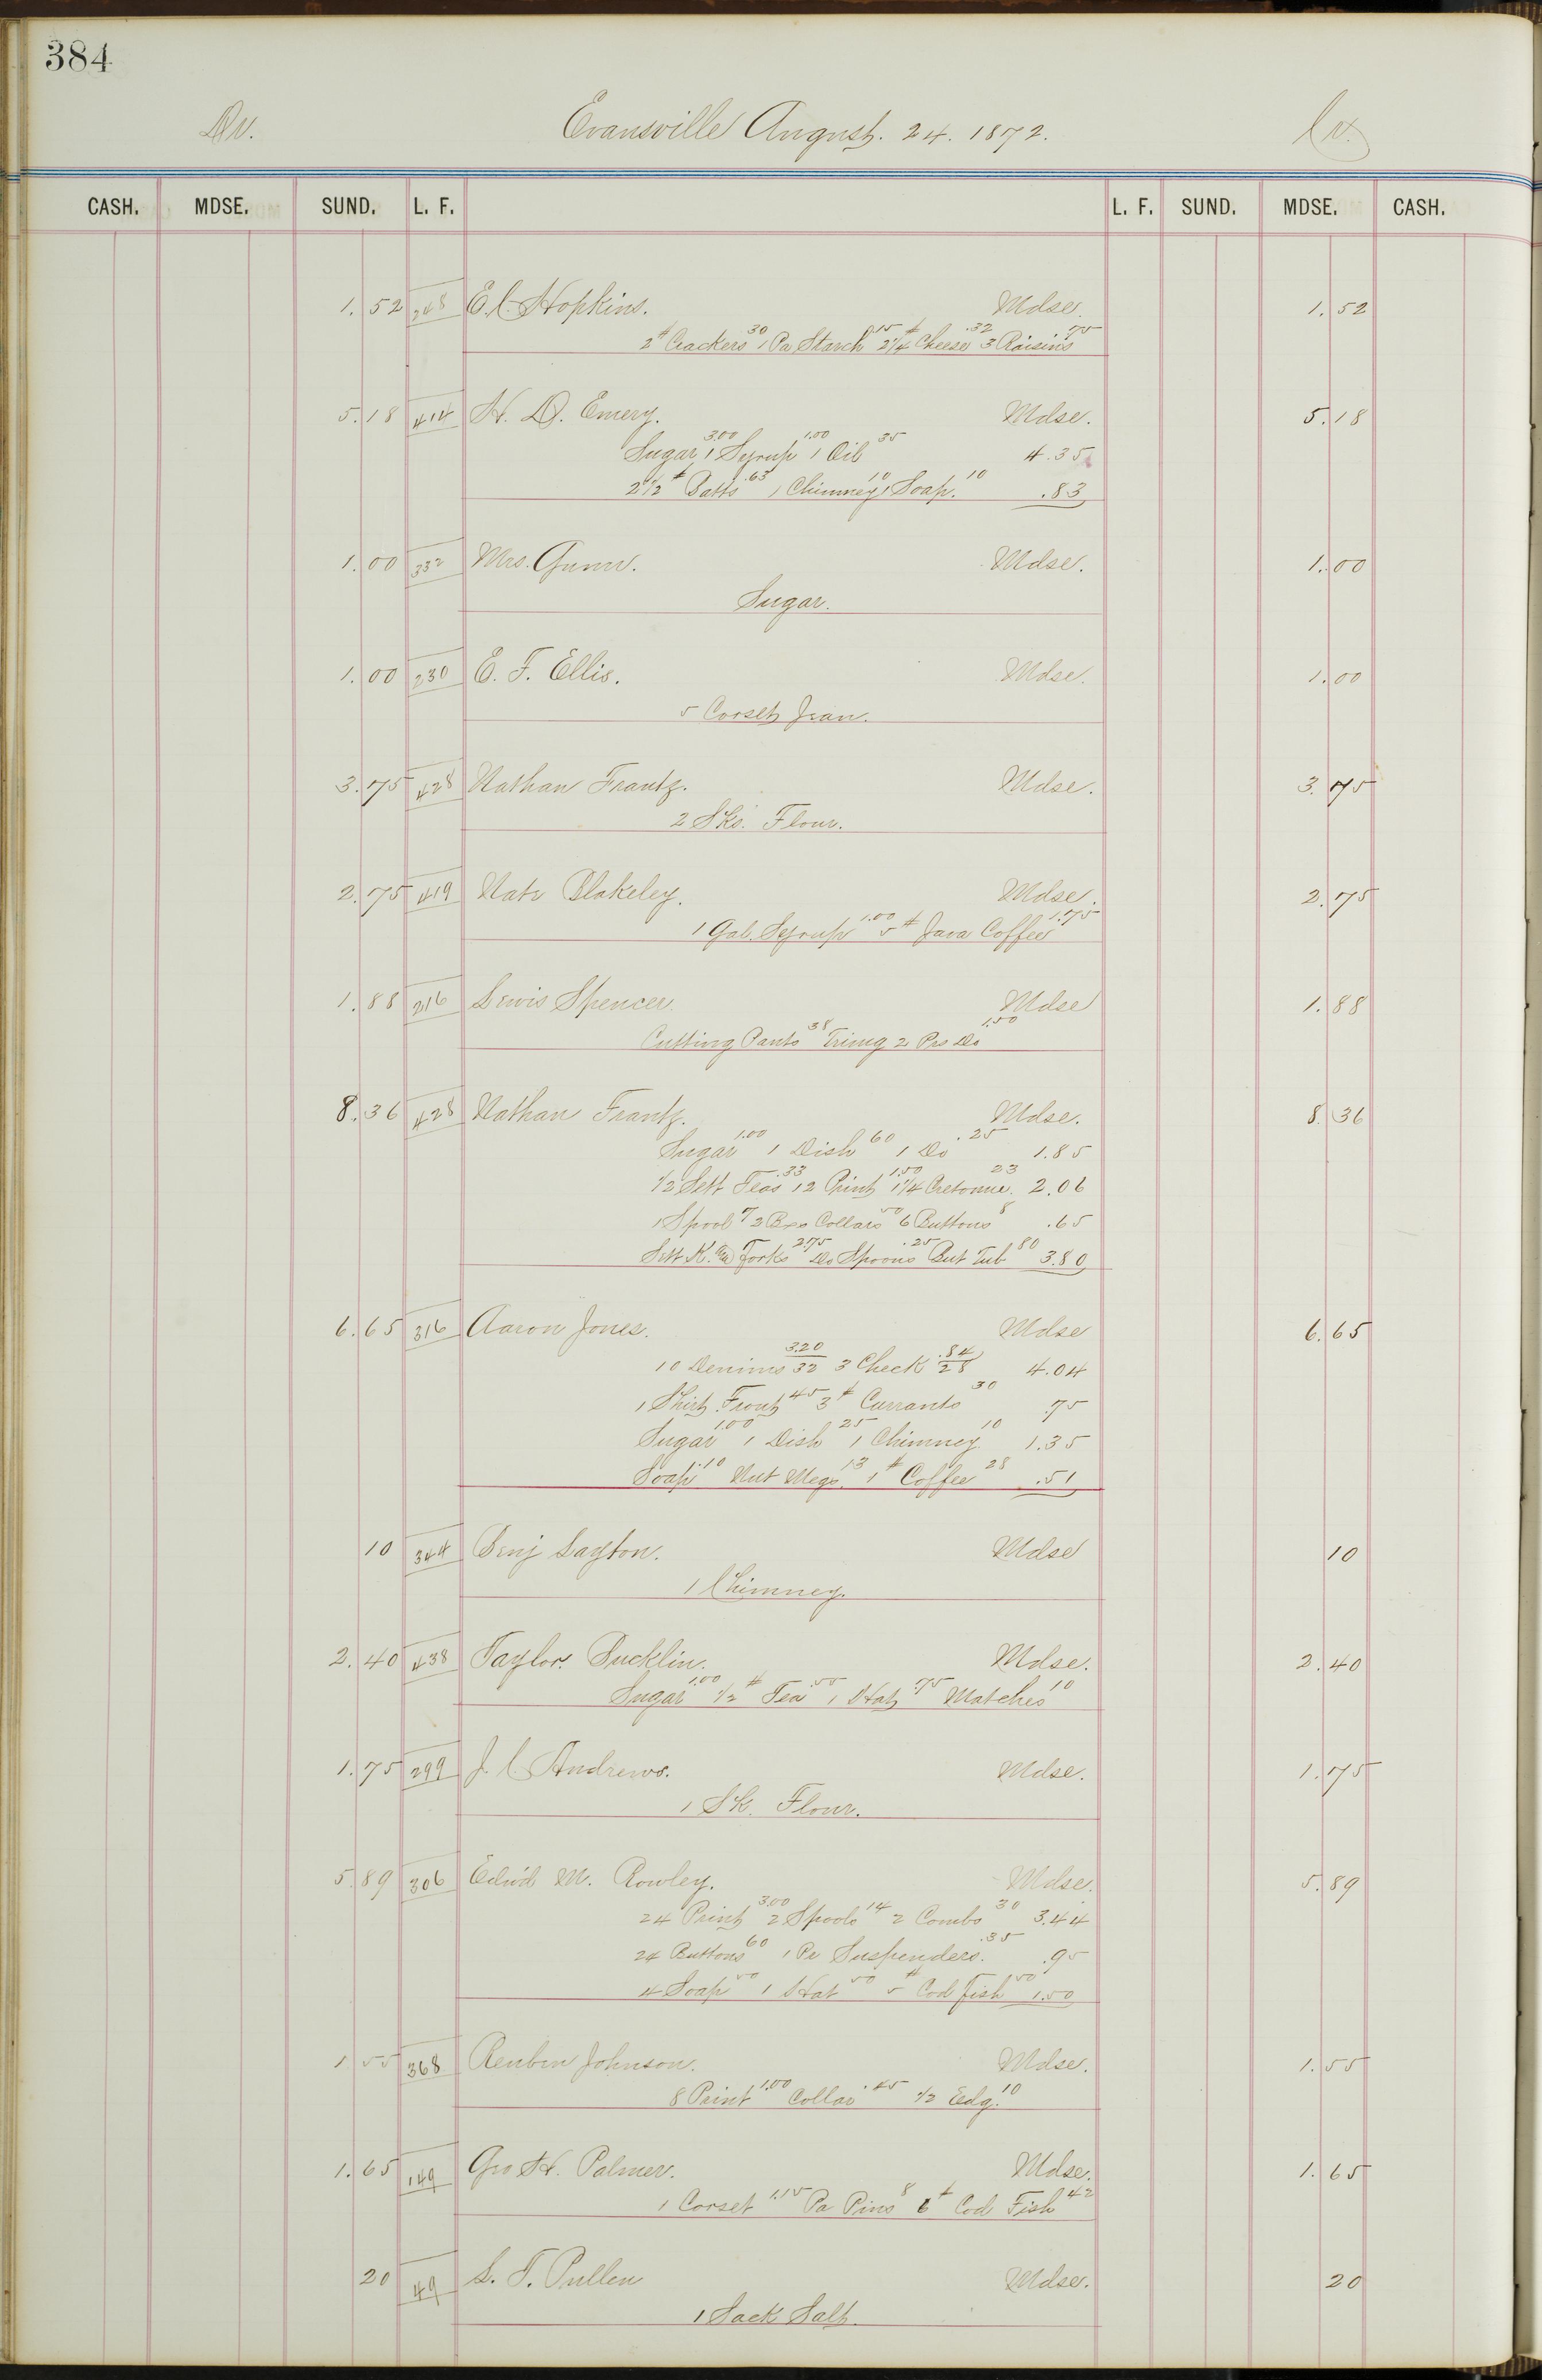 384
Dr. Evansville August. 24. 1872. Cr.
CASH. MDSE. SUND. L. F. L. F. SUND. MDSE. CASH.
1.52 248 E. C. Hopkins. Mdse. 1.52
2# Crackers 30 1 Pa Starch 15 2 1/4# Cheese .32 3 Raisins 75
5.18 414 H. D. Emery. Mdse. 5.18
Sugar 3.00 1 Syrup 1.00 1 Oil 35 4.35
2 1/2# Batts .63 1 Chimney 10 1 Soap. 10 .83
1.00 332 Mrs. Gunn. Mdse. 1.00
Sugar.
1.00 230 E. F. Ellis. Mdse. 1.00
5 Corset Jean.
3.75 428 Nathan Frantz. Mdse. 3.75
2 Sks. Flour.
2.75 419 Nate Blakeley. Mdse. 2.75
1 Gal. Syrup 1.00 5# Java Coffee 1.75
1.88 216 Lewis Spencer. Mdse 1.88
Cutting Pants 38 Trimg 2 Prs Do 1.50
8.36 428 Nathan Frantz. Mdse. 8.36
Sugar 1.00 1 Dish 60 1 Do .25 1.85
1/2 Sett Teas .33 12 Print 1.50 1 1/4 Cretonne. 23 2.06
1 Spool 7 2 Bxs Collars 50 6 Buttons 8 .65
Sett K. & Forks 2.75 Do Spoons .25 But Tub 80 3.80
6.65 316 Aaron Jones. Mdse 6.65
10 Denims 3.20/32 3 Check .84/28 4.04
1 Shirt Front 45 3# Currants 30 .75
Sugar 1.00 1 Dish 25 1 Chimney 10 1.35
Soap .10 Nut Megs. 13 1# Coffee 28 .51
10 344 Benj Layton. Mdse 10
1 Chimney.
2.40 438 Taylor Bucklin. Mdse. 2.40
Sugar 1.00 1/2# Tea .55 1 Hat .75 Matches 10
1.75 299 J. C. Andrews. Mdse. 1.75
1 Sk. Flour.
5.89 306 Edw'd M. Rowley. Mdse. 5.89
24 Print 3.00 2 Spools 14 2 Combs 30 3.44
24 Buttons 60 1 Pr Suspenders. .35 .95
4 Soap 50 1 Hat 50 5# Cod Fish 50 1.50
1 55 368 Reuben Johnson. Mdse. 1.55
8 Print 1.00 Collar .45 1/2 Edg. 10
1.65 149 Geo H. Palmer. Mdse. 1.65
1 Corset 1.15 Pa Pins 8 6# Cod Fish 42
20 49 L. T. Pullen Mdse. 20
1 Sack Salt.